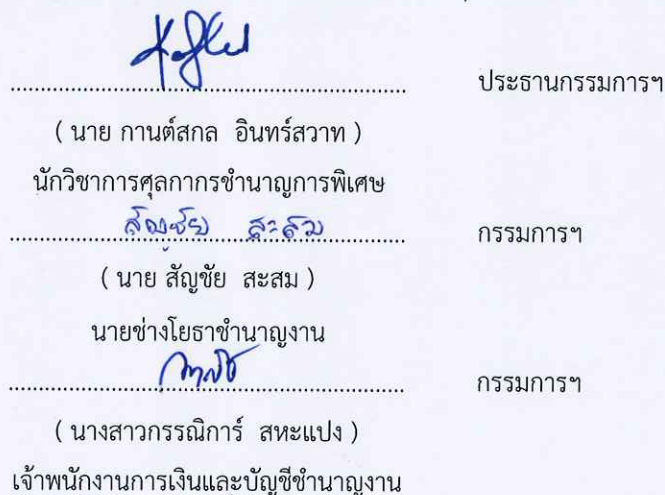 ประธานกรรมการฯ
( นาย กานต์สกล อินทร์สวาท )
นักวิชาการศุลกากรชำนาญการพิเศษ
สัญชัย สะสม กรรมการฯ
( นาย สัญชัย สะสม )
นายช่างโยธาชำนาญงาน
กรรมการฯ
( นางสาวกรรณิการ์ สหะแปง )
เจ้าพนักงานการเงินและบัญชีชำนาญงาน